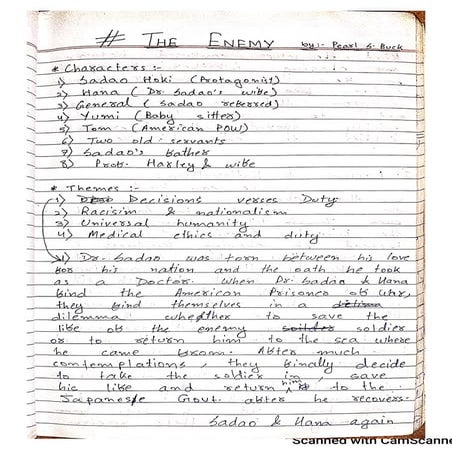 # THE ENEMY by:- Pearl S. Buck
* Characters :-
1) Sadao Hoki (Protagonist)
2) Hana (Dr. Sadao's wife)
3) General (Sadao referred)
4) Yumi (Baby sitter)
5) Tom (American POW)
6) Two old servants
7) Sadao's father
8) Prof. Harley & wife
* Themes :-
1) Decisions verses Duty
2) Racisim & nationalism
3) Universal humanity
4) Medical ethics and duty
1) Dr. Sadao was torn between his love
for his nation and the oath he took
as a Doctor. When Dr. Sadao & Hana
find the American Prisoner of war,
they find themselves in a
dilemma whether to save the
life of the enemy soldier
or to return him to the sea where
he came from. After much
contemplations, they finally decide
to take the soldier in, save
his life and return him to the
Japanese Govt. after he recovers.
Sadao & Hana again
Scanned with CamScanne